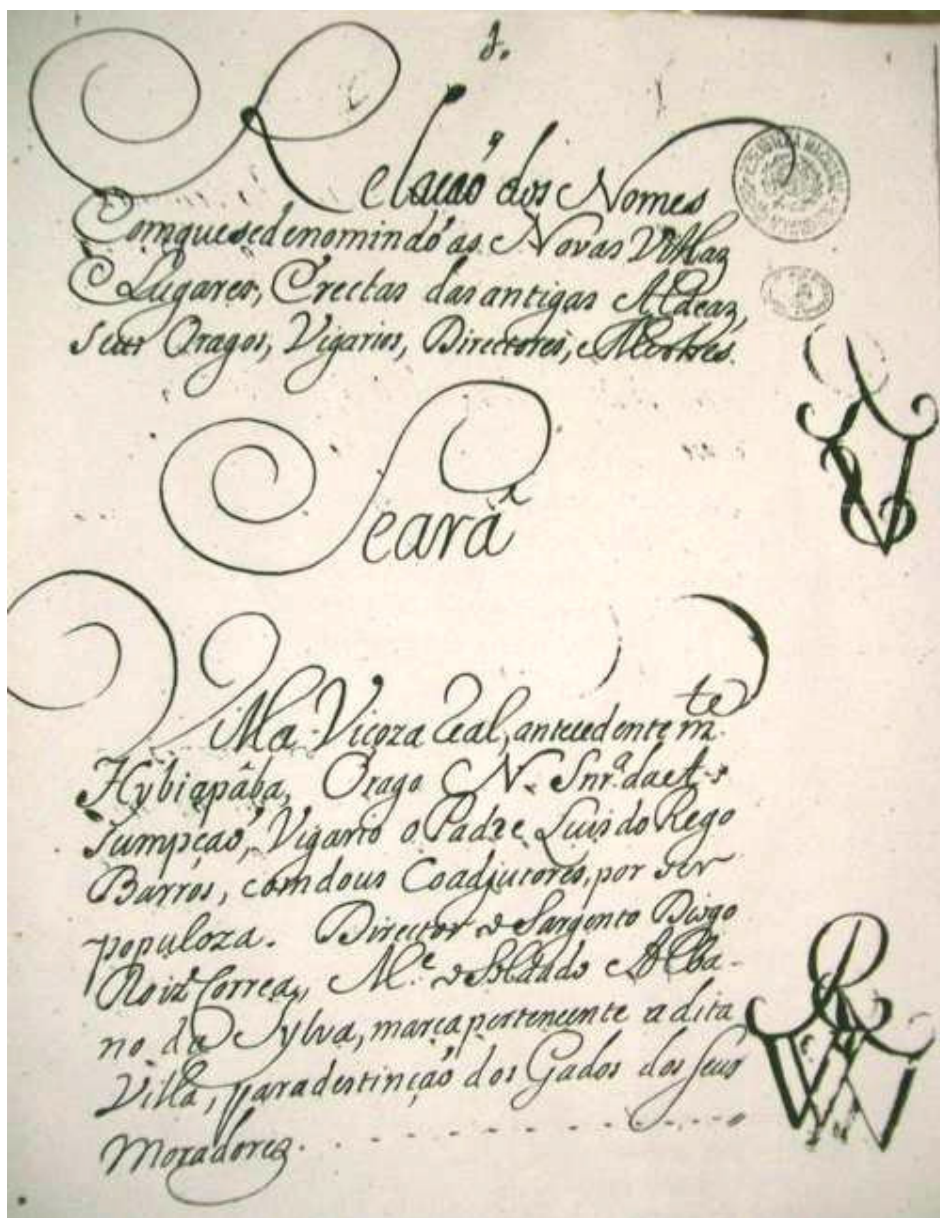 1.
Relação dos Nomes
Comquesedenominão as Novas Villaz
E Lugares, Erectas das antigas Aldeaz,
seus Oragos, Vigarios, Directores, e Mestres.
Seará
Villa Viçoza Real, antecedentem.te
Hybiapâba, Orago N. Snr.ª da As-
sumpção, Vigario o Padre Luis do Rego
Barros, comdous Coadjutores, por ser
populoza. Director o Sargento Diogo
Roiz Correa, M.e o Soldado Alba-
no da Sylva, marca pertencente a dita
Villa, para destinção dos Gados dos seus
Moradorez